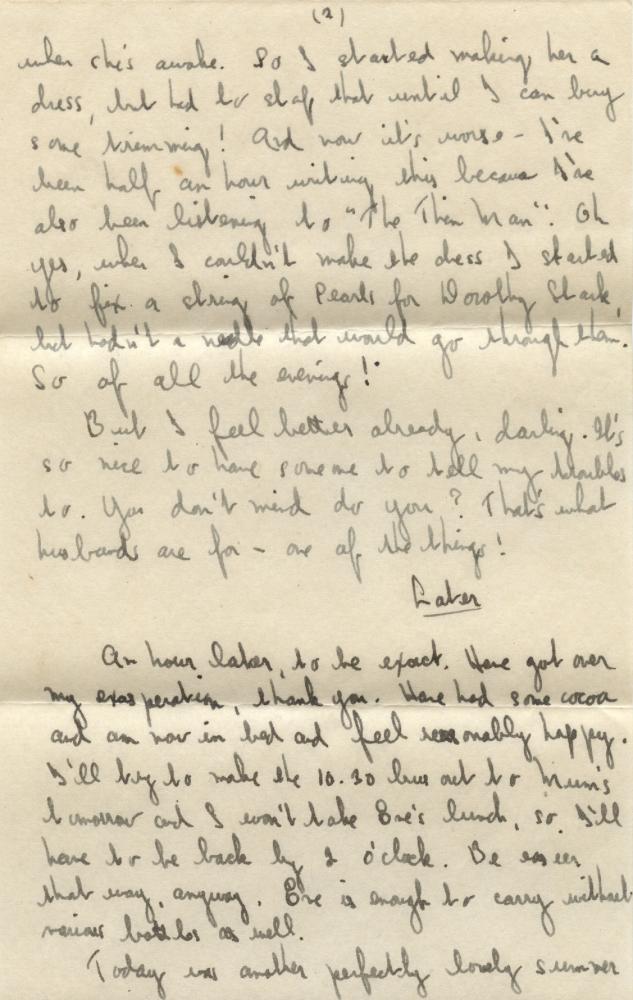 (2)
when she's awake. So I started making her a
dress, but had to stop that until I can buy
some trimming! And now it's worse - I've
been half an hour writing this because I've
also been listening to "The Thin Man". Oh
yes, when I couldn't make the dress I started
to fix a string of Pearls for Dorothy Stack,
but hadn't a needle that would go through them.
So of all the evenings!
But I feel better already, darling. It's
so nice to have someone to tell my troubles
to. You don't mind do you? That's what
husbands are for - one of the things!
Later
An hour later, to be exact. Have got over
my exasperation, thank you. Have had some cocoa
and am now in bed and feel reasonably happy.
I'll try to make the 10.30 bus out to Mum's
tomorrow and I won't take Eve's lunch, so I'll
have to be back by 2 o'clock. Be easier
that way, anyway. Eve is enough to carry without
various bottles as well.
Today was another perfectly lovely summer